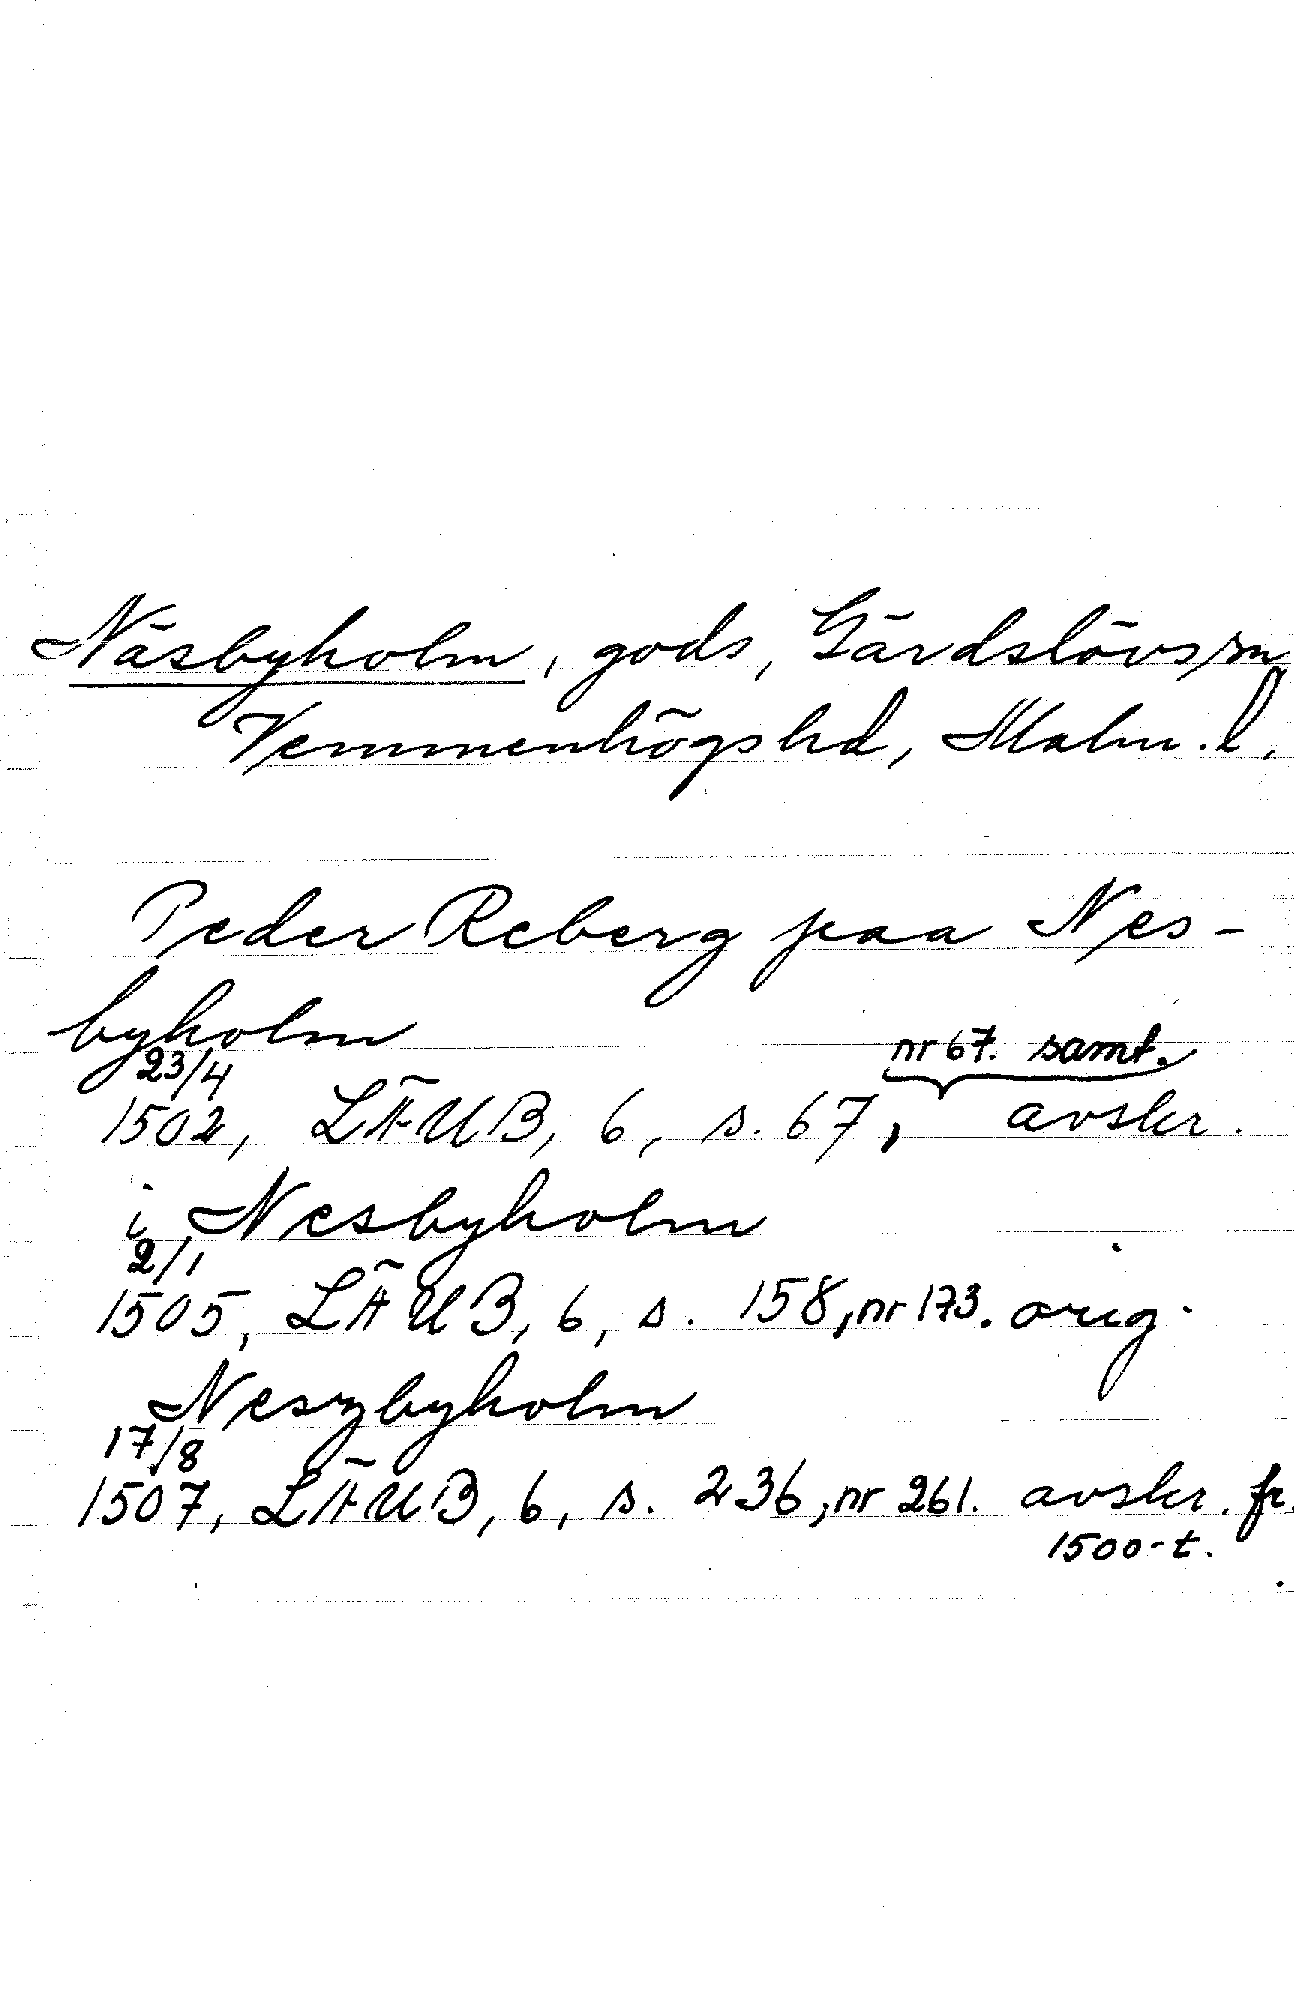 Näsbyholm, gods, Gärdslövs sn
Vemmenhögs hd, Malm. l.
Peder Reberg paa Nes-
byholm
23/4 nr 67. samt.
1502, LÄUB, 6, s. 67, avskr.
i Nesbyholm
2/1
1505, LÄUB, 6, s. 158, nr 173. orig.
Neszbyholm
17/8
1507, LÄUB, 6, s. 236, nr 261. avskr. fr.
1500-t.